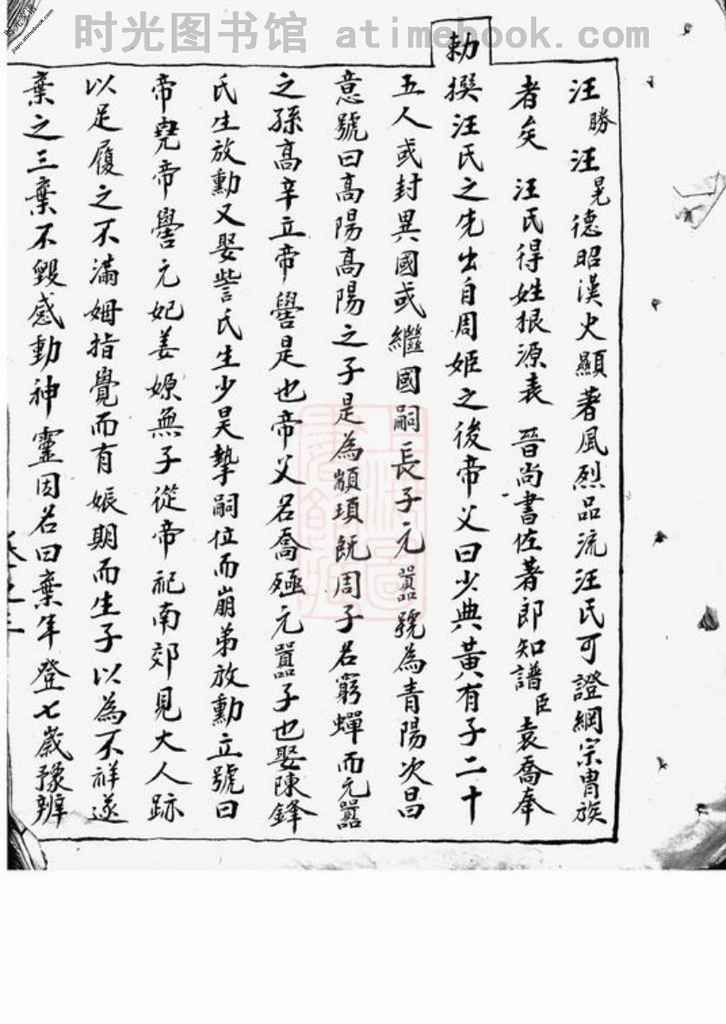 时光图书馆 atimebook.com
汪勝汪晃德昭漢火顯著風烈品流汪氏可證綱宗胄族
者矣 汪氏得姓根源表 晉尚書佐著郎知譜臣袁喬奉
勅撰汪氏之先出自周姬之後帝父曰少典黃有子二十
五人或封異國或繼國嗣長子元囂號為青陽次昌
意號曰高陽高陽之子是為顓頊既周子名窮蟬而元囂
之孫高辛立帝嚳是也帝父名喬極元囂子也娶陳鋒
氏生放勳又娶訾氏生少昊摯嗣位而崩弟放勳立號曰
帝堯帝嚳元妃姜嫄無子從帝祀南郊見大人跡
以足履之不滿姆指覺而有娠期而生子以為不祥遂
棄之三棄不毀感動神靈因名曰棄年登七歲豫辨